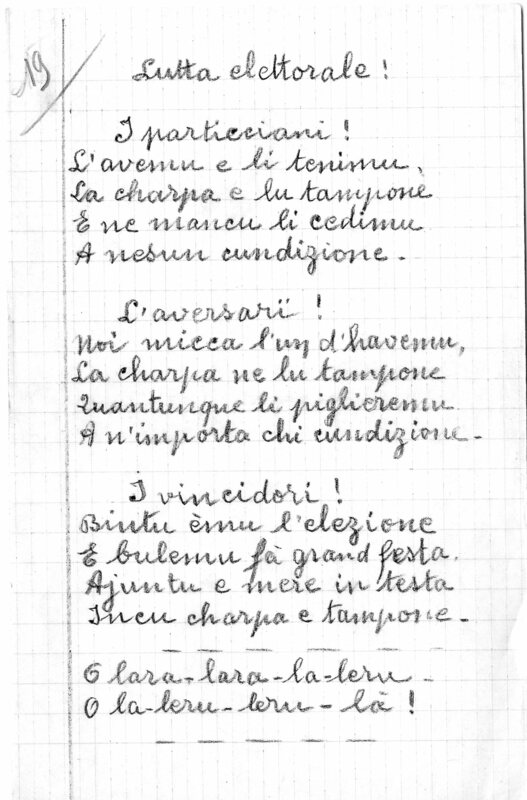 19
Lutta elettorale !
I particciani !
L'avemu e li tenimu,
La charpa e lu tampone
E ne mancu li cedimu
A nesun cundizione .
L'aversarii !
Noi micca l'un d'havemu,
La charpa ne lu tampone
Quantunque li piglieremu
A n'importa chi cundizione -
I vincidori !
Bintu èmu l'elezione
E bulemu fà grand festa.
Ajuntu e mere in testa
Incu charpa e tampone -
O lara - lara - la - leru -
O la - leru - leru - là !